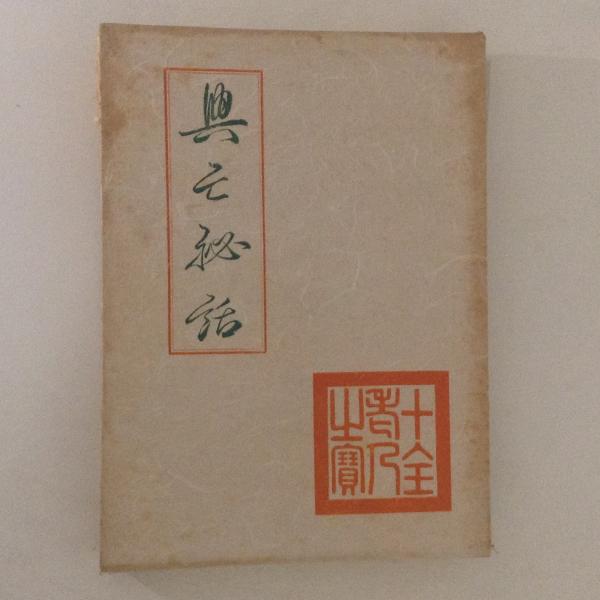 興亡秘話
十全
老人
之寶